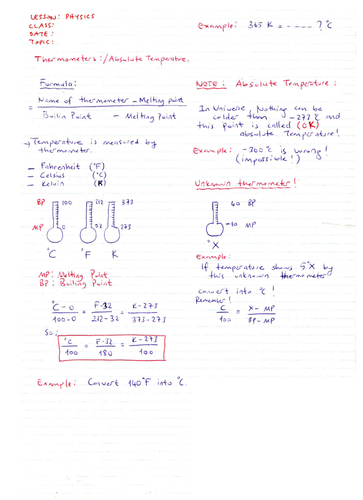 LESSON: PHYSICS
CLASS:
DATE:
TOPIC:
Thermometers:/Absolute Temperature.
Formula:
= Name of thermometer - Melting point
Boilin Point - Melting Point
→ Temperature is measured by
thermometer.
- Fahrenheit (°F)
- Celsius (°C)
- Kelvin (K)
BP 100 212 373
MP 0 32 273
°C °F K
MP: Melting Point
BP: Boiling Point
°C-0 = F-32 = K-273
100-0 212-32 373-273
So:
°C = F-32 = K-273
100 180 100
Example: Convert 140°F into °C.
Example: 365 K = ----- ? °C
NOTE: Absolute Temperature:
In Universe, Nothing can be
colder than -273°C and
this point is called (0K)
absolute Temperature!
Example: -300°C is wrong!
(impossible!)
Unknown thermometer!
40 BP
-10 MP
°X
Example:
If temperature shows 5°X by
this unknown thermometer
convert into °C!
Remember!
C = X-MP
100 BP-MP